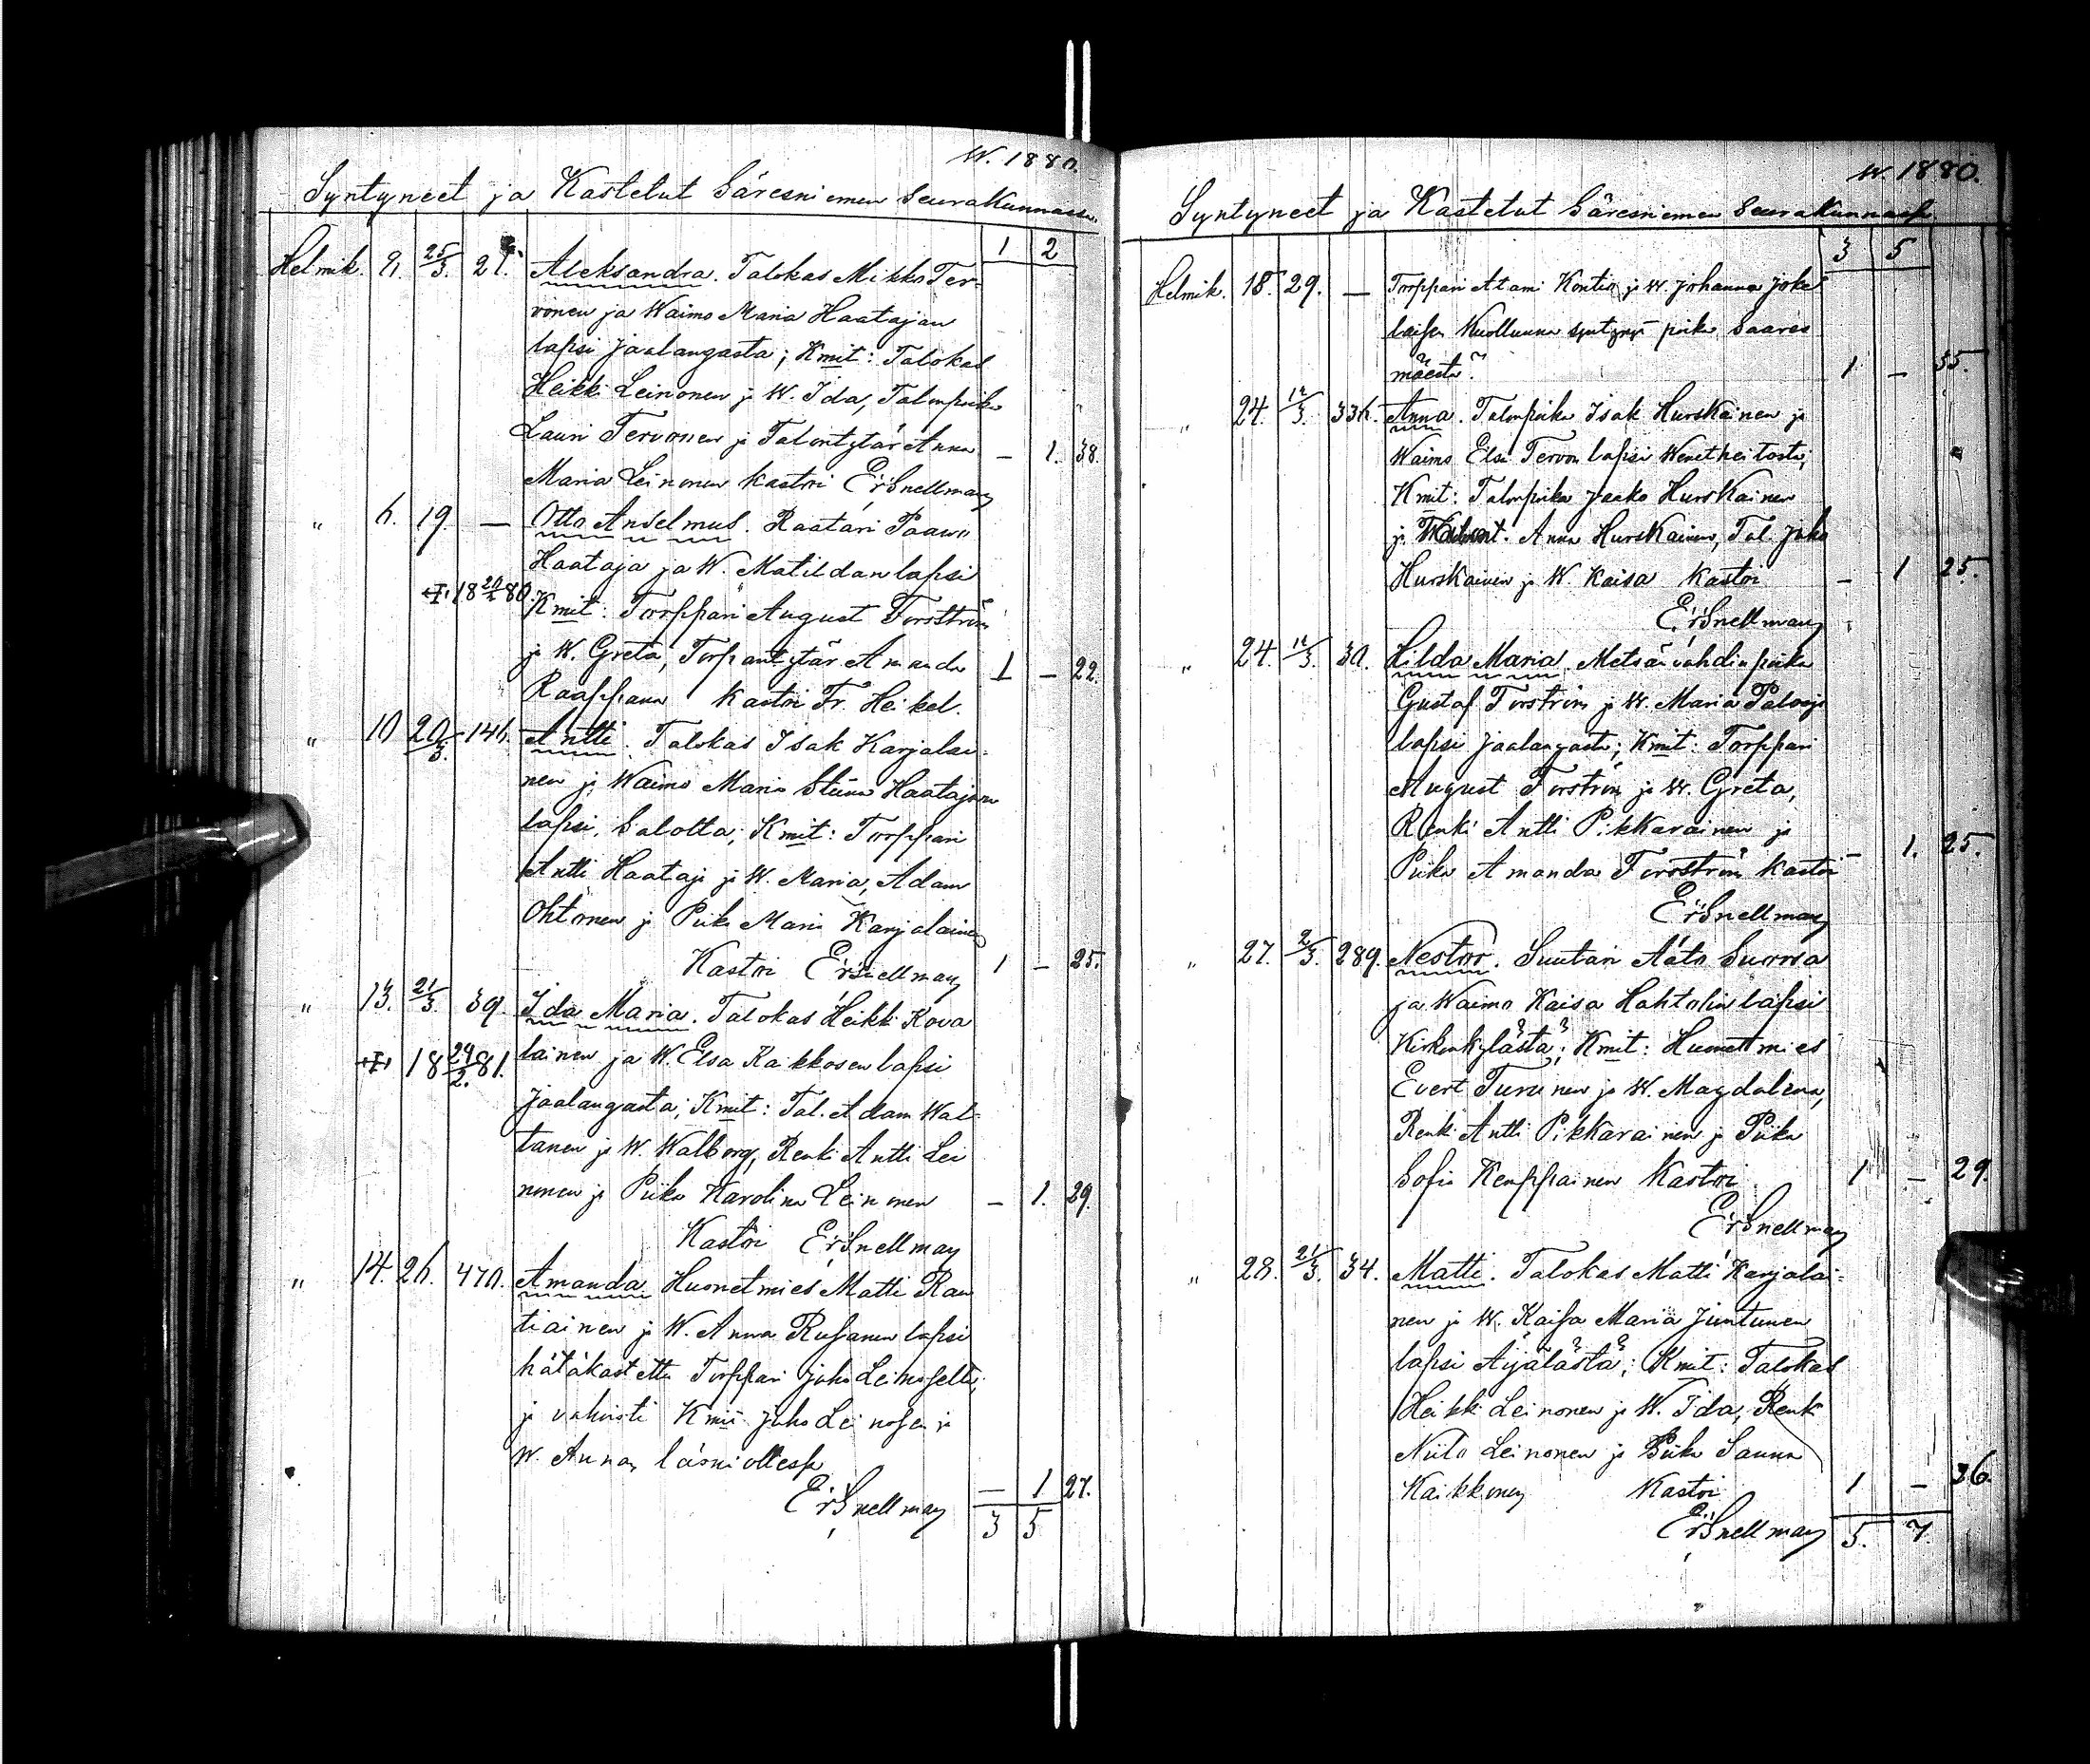 W. 1880.
Syntyneet ja Kastetut Säresniemen Seurakunnassa.
1 2
Helmik. 25/3. Aleksandra. Talokas Mikko Ter-
vonen ja Waimo Maria Haatajan
lapsi Jaalangasta; Kmit: Talokas
Heikki Leinonen ja W. Ida, Talonpoika
Lauri Tervonen ja Talontytär Anna — 1. 38.
Maria Leinonen Kastoi ErSnellman
„ 6. 19. — Otto Anselmus. Raatari Paavo
Haataja ja W. Matildan lapsi
18 20/2 80. Kmit: Torppari August Forsström
ja W. Greta, Torpantytär Amanda 1 — 22.
Raappana Kastoi Fr. Heikel.
„ 10 20/3. 146. Antti. Talokas Isak Karjalai-
nen ja Waimo Maria Stiina Haatajan
lapsi, Salotta; Kmit: Torppari
Antti Haataja ja W. Maria, Adam
Ohtonen ja Piika Maria Karjalainen
Kastoi ErSnellman 1 — 25.
„ 13. 21/3. 39. Ida Maria. Talokas Heikki Kova
18 24/2. 81. lainen ja W. Elsa Kaikkosen lapsi
Jaalangasta; Kmit: Tal. Adam Wal-
tanen ja W. Walborg, Renki Antti Lei
nonen ja Piika Karolina Leinonen — 1. 29.
Kastoi ErSnellman
„ 14. 26. 470. Amanda Huonetmies Matti Rau
tiainen ja W. Anna Rusanen lapsi
hätäkastettu Torppari Juho Leinoselta,
ja vahvisti Kmit Juho Leinosen ja
W. Annan läsnäollessa
ErSnellman — 1 27.
3 5
W. 1880.
Syntyneet ja Kastetut Säresniemen Seurakunnass.
3 5
Helmik. 18. 29. — Torppari Atami Kontio ja W. Johanna Joke
laisen Kuolluna syntynyt poika Saares
mäestä. 1 — 35.
„ 24. 12/3. 336. Anna. Talonpoika Isak Hurskainen ja
Waimo Elsa Tervon lapsi Wenetheitosta;
Kmit: Talonpoika Jaako Hurskainen
ja Anna Hurskainen, Tal. Juho
Hurskainen ja W. Kaisa Kastoi — 1 25.
ErSnellman
„ 24. 12/3. 30. Hilda Maria. Metsänvahdinpoika
Gustaf Forström ja W. Maria Palosaj
lapsi Jaalangasta; Kmit: Torppari
August Forström ja W. Greta,
Renki Antti Pikkarainen ja
Piika Amanda Forsström Kastoi — 1. 25.
ErSnellman
„ 27. 2/3. 289. Nestor. Suutari Aato Suorsa
ja Waimo Kaisa Hahtolin lapsi
Kirkonkylästä; Kmit: Huonetmies
Evert Turunen ja W. Magdalena,
Renki Antti Pikkarainen ja Piika
Sofia Kemppainen Kastoi 1 — 29.
ErSnellman
„ 28. 21/3. 34. Matti. Talokas Matti Karjalai-
nen ja W. Kaisa Maria Juntunen
lapsi Äijälästä; Kmit: Talokas
Heikki Leinonen ja W. Ida, Renki
Niilo Leinonen ja Piika Sanna
Kaikkonen Kastoi 1 — 36.
ErSnellman 5. 7.